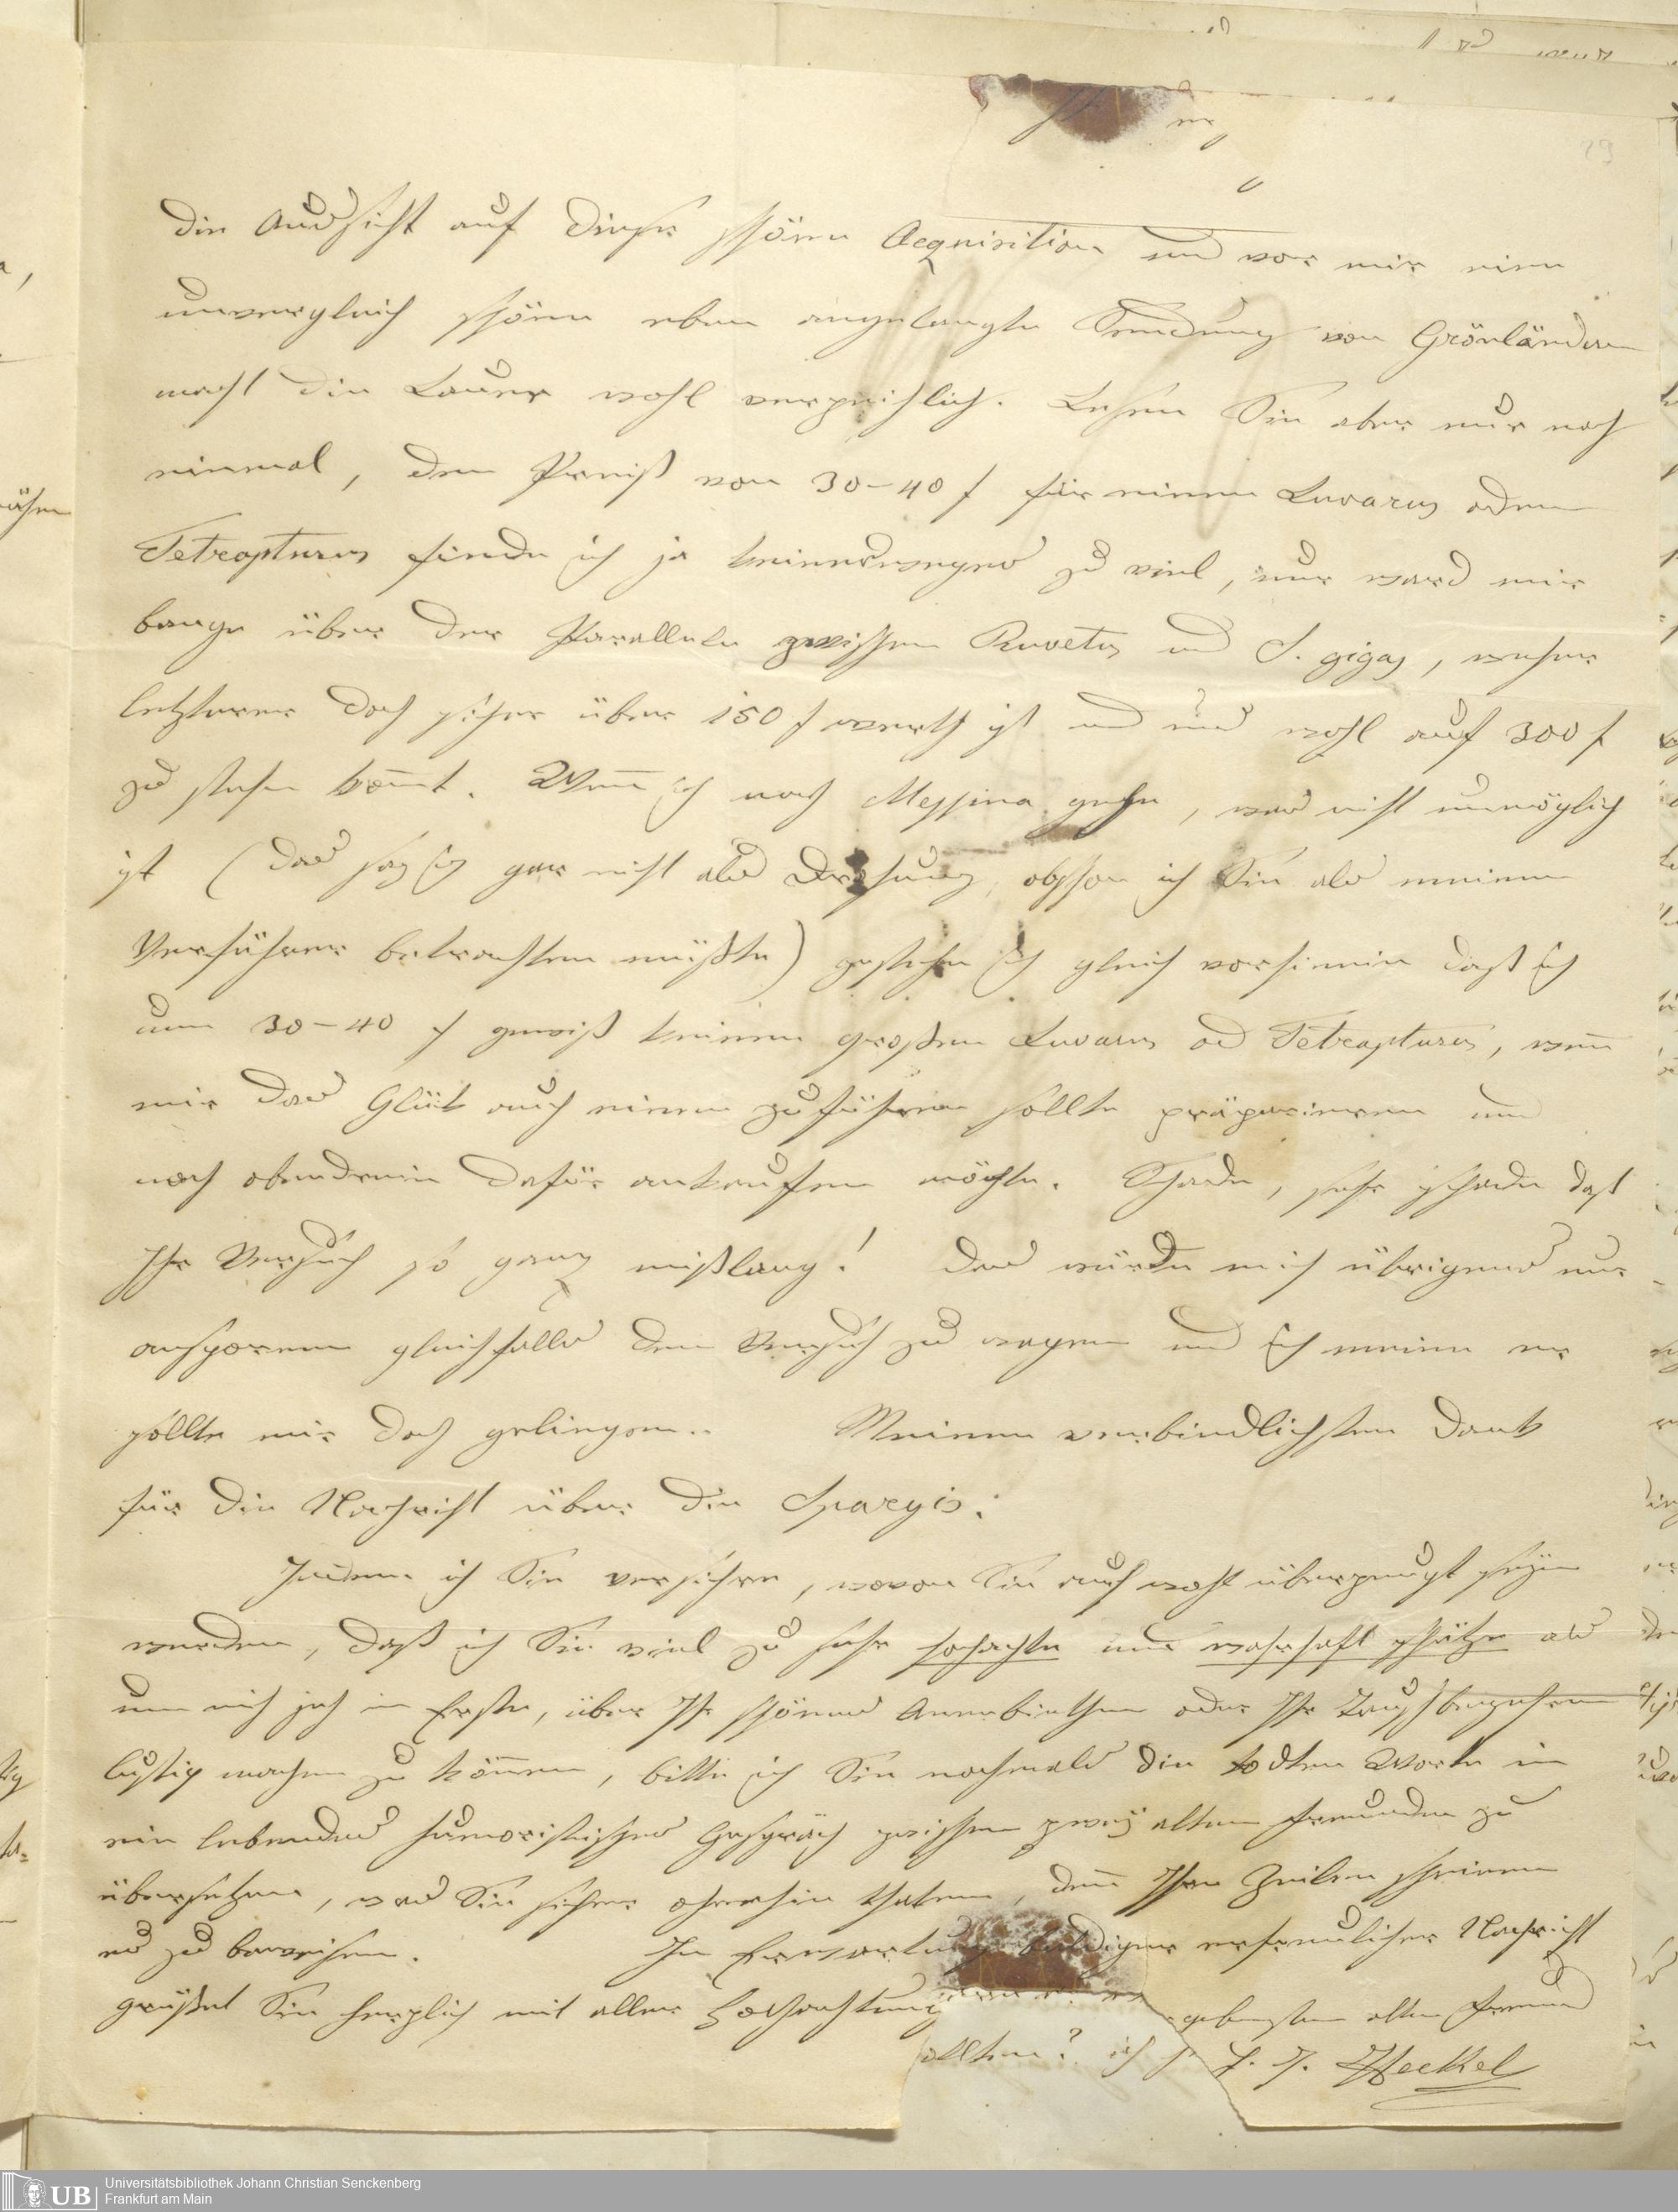 29
die Aussicht auf diese schöne Acquisition und vor mir eine
unvergleich schöne eben angelangte Sendung von Grönländern
macht die Laune wohl verzeihlich. Lesen Sie aber nur noch
einmal, den Preiß von 30–40 f für einen Luvarus oder
Tetrapturus finde ich ja keineswegs zu viel, nur ward mir
bange über der Parallele zwischen Ruvetus und S. gigas,
letzterer doch sicher über 150 f werth ist und uns wohl auf 300 f
zu stehen kom̄t. Wen̄ ich nach Messina gehe, was nicht unmöglich
ist (das sag ich gar nicht als Drohung, obschon ich Sie als meinen
Verführer betrachten müßte) gestehe ich gleich vorhinein daß ich
um 30–40 f gewiß keinen großen Luvarus od Tetrapturus, wen̄
mir das Glück auch einen zuführen sollte präpariren und
noch obendrein dafür ankaufen möchte. Schade, sehr schade daß
Ihr Versuch so ganz mißlang! Das würde mich übrigens nur
anspornen gleichfalls den Versuch zu wagen und ich meine er
sollte mir doch gelingen..  Meinen verbindlichsten Dank
für die Nachricht über die Spargis.
Indem ich Sie versichere, wovon Sie auch wohl überzeugt seyn
werden, daß ich Sie viel zu sehr hochachte und wahrhaft schätze als
um mich je in Ernste, über Ihr schönes Anerbiethen oder Ihr Tauschbegehren
lustig machen zu kön̄en, bitte ich Sie nochmals die todten Worte in
ein lebendes humoristisches Gespräch zwischen zwey alten Freunden zu
übersetzen, was Sie sicher ohnehin thaten, den̄ Ihre Zeilen scheinen
es zu beweisen.  In Erwartung baldiger erfreulicher Nachricht
grüßet Sie herzlich mit aller Hochachtung gebensten alten Freund
sollten? ich J. J. Heckel
UB Universitätsbibliothek Johann Christian Senckenberg
Frankfurt am Main